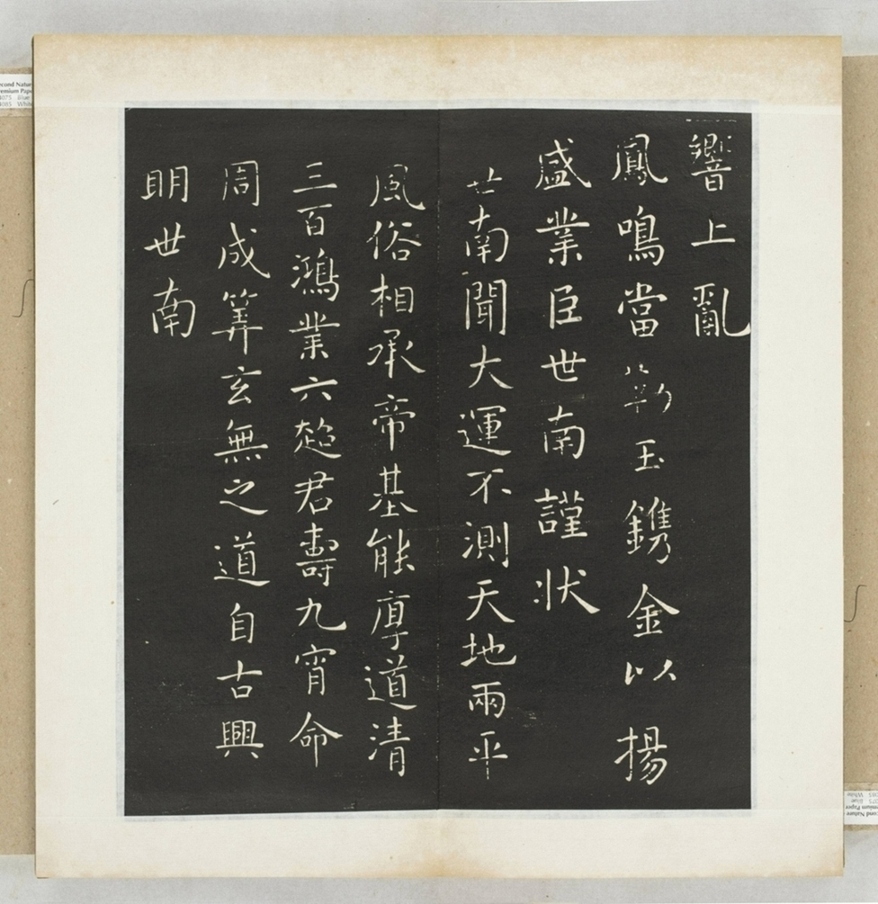 響上亂
鳳鳴當勒玉鐫金以揚
盛業臣世南謹狀
世南聞大運不測天地兩平
風俗相承帝基能厚道清
三百鴻業六超君壽九霄命
周成筭玄無之道自古興
明世南